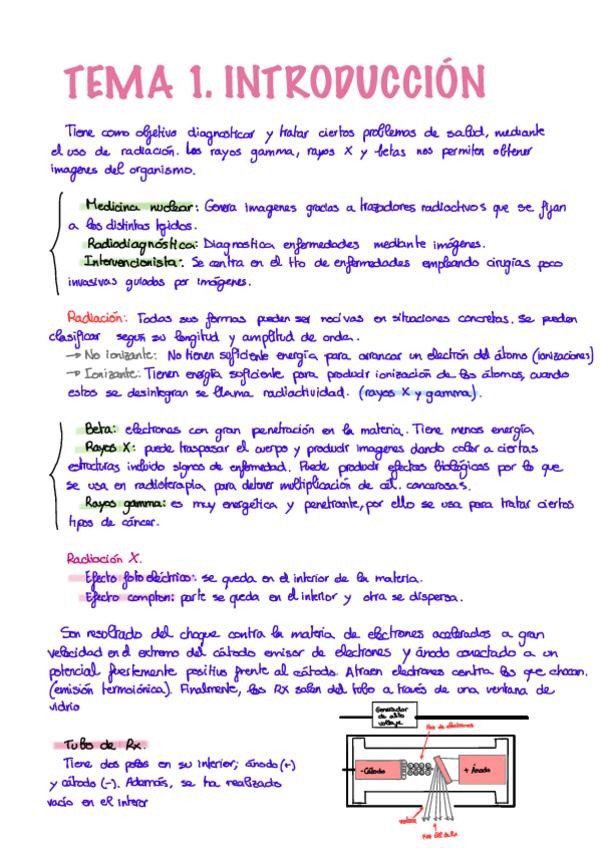 TEMA 1. INTRODUCCIÓN
Tiene como objetivo diagnosticar y tratar ciertos problemas de salud, mediante
el uso de radiación. Los rayos gamma, rayos X y betas nos permiten obtener
imagenes del organismo.
Medicina nuclear: Genera imagenes gracias a trazadores radiactivos que se fijan
a los distintos tejidos.
Radiodiagnóstica: Diagnostica enfermedades mediante imágenes.
Intervencionista: Se centra en el tto de enfermedades empleando cirugías poco
invasivas guiadas por imágenes.
Radiación: Todas sus formas pueden ser nocivas en situaciones concretas. Se pueden
clasificar según su longitud y amplitud de onda.
→ No ionizante: No tienen suficiente energía para arrancar un electrón del átomo (ionizaciones)
→ Ionizante: Tienen energía suficiente para producir ionización de los átomos, cuando
estos se desintegran se llama radiactividad. (rayos X y gamma).
Beta: electrones con gran penetración en la materia. Tiene menos energía
Rayos X: puede traspasar el cuerpo y producir imagenes dando color a ciertas
estructuras incluido signos de enfermedad. Puede producir efectos biológicos por lo que
se usa en radioterapia para detener multiplicación de cél. cancerosas.
Rayos gamma: es muy energética y penetrante, por ello se usa para tratar ciertos
tipos de cáncer.
Radiación X.
Efecto fotoeléctrico: se queda en el interior de la materia.
Efecto compton: parte se queda en el interior y otra se dispersa.
Son resultado del choque contra la materia de electrones acelerados a gran
velocidad en el extremo del cátodo emisor de electrones y ánodo conectado a un
potencial fuertemente positivo frente al cátodo. Atraen electrones contra los que chocan.
(emisión termoiónica). Finalmente, los RX salen del tubo a través de una ventana de
vidrio
Generador
de alto
voltaje
Haz de electrones
Tubo de Rx.
Tiene dos polos en su interior; ánodo (+)
y cátodo (-). Además, se ha realizado
vacío en el interior
- Cátodo
+ Ánodo